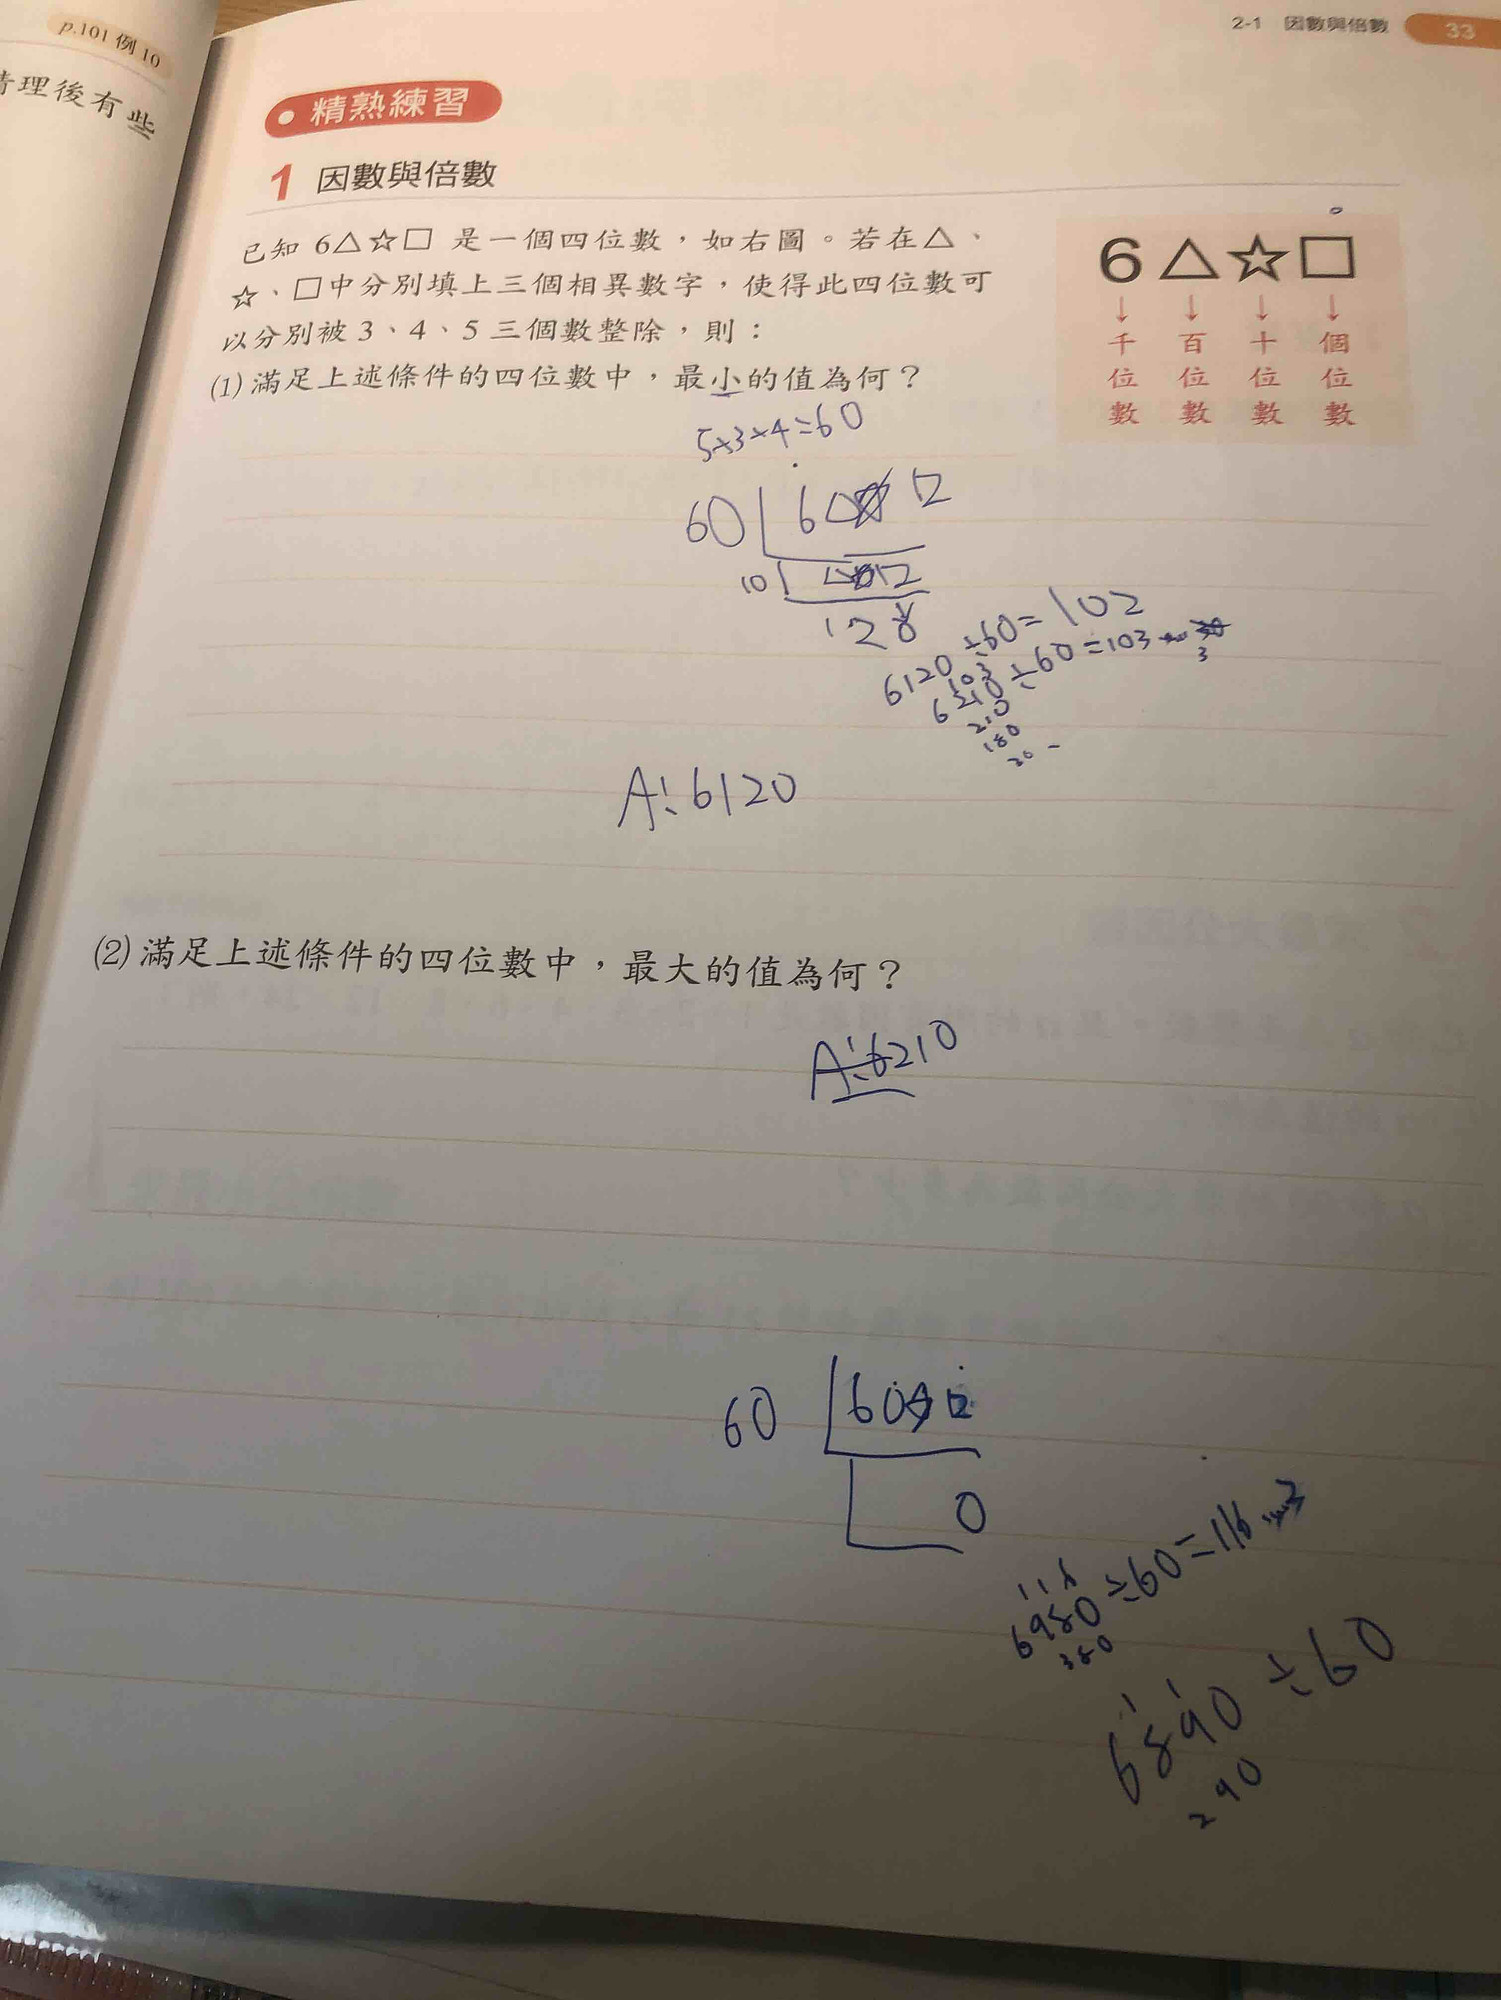 p.101 例10
清理後有些
2-1 因數與倍數 33
精熟練習
1 因數與倍數
已知 6△☆□ 是一個四位數，如右圖。若在△、
☆、□中分別填上三個相異數字，使得此四位數可
以分別被 3、4、5 三個數整除，則：
(1)滿足上述條件的四位數中，最小的值為何？
6△☆□
↓ ↓ ↓ ↓
千 百 十 個
位 位 位 位
數 數 數 數
5×3×4=60
60
10
120
6120÷60=102
6210÷60=103
3
210
180
30
A:6120
(2)滿足上述條件的四位數中，最大的值為何？
A:6210
60
0
116
6980÷60=116
380
11
6890÷60
290